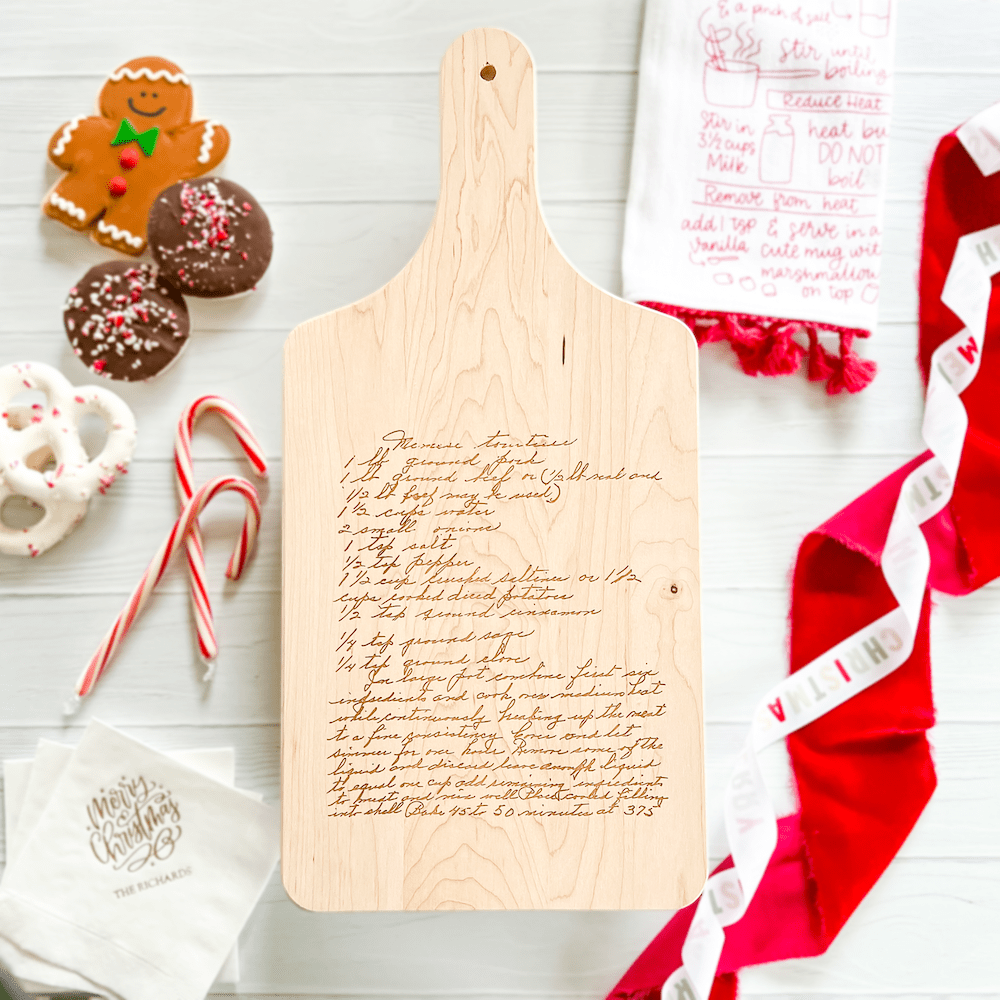 & a pinch of salt
Stir until
boiling
Reduce Heat
Stir in
3½ cups
Milk
heat bu
DO NOT
boil
Remove from heat
add 1 tsp & serve in a
vanilla cute mug wit
marshmallow
on top
tourtiere
1 lb ground pork
1 lb ground beef or (½ lb veal and
1/2 lb beef may be used)
1 1/2 cups water
2 small onions
1 tsp salt
1/2 tsp pepper
1 1/2 cup crushed saltines or 1 1/2
cups cooked diced potatoes
1/2 tsp ground cinnamon
1/4 tsp ground sage
1/4 tsp ground clove
In large pot combine first six
ingredients and cook over medium heat
while continuously breaking up the meat
to a fine consistency Cover and let
simmer for one hour Remove some of the
liquid and discard save enough liquid
to equal one cup add remaining ingredients
to meat and mix well Place cooled filling
into shell Bake 45 to 50 minutes at 375°
Merry
Christmas
THE RICHARDS
H
ME
STM
CHRISTMA